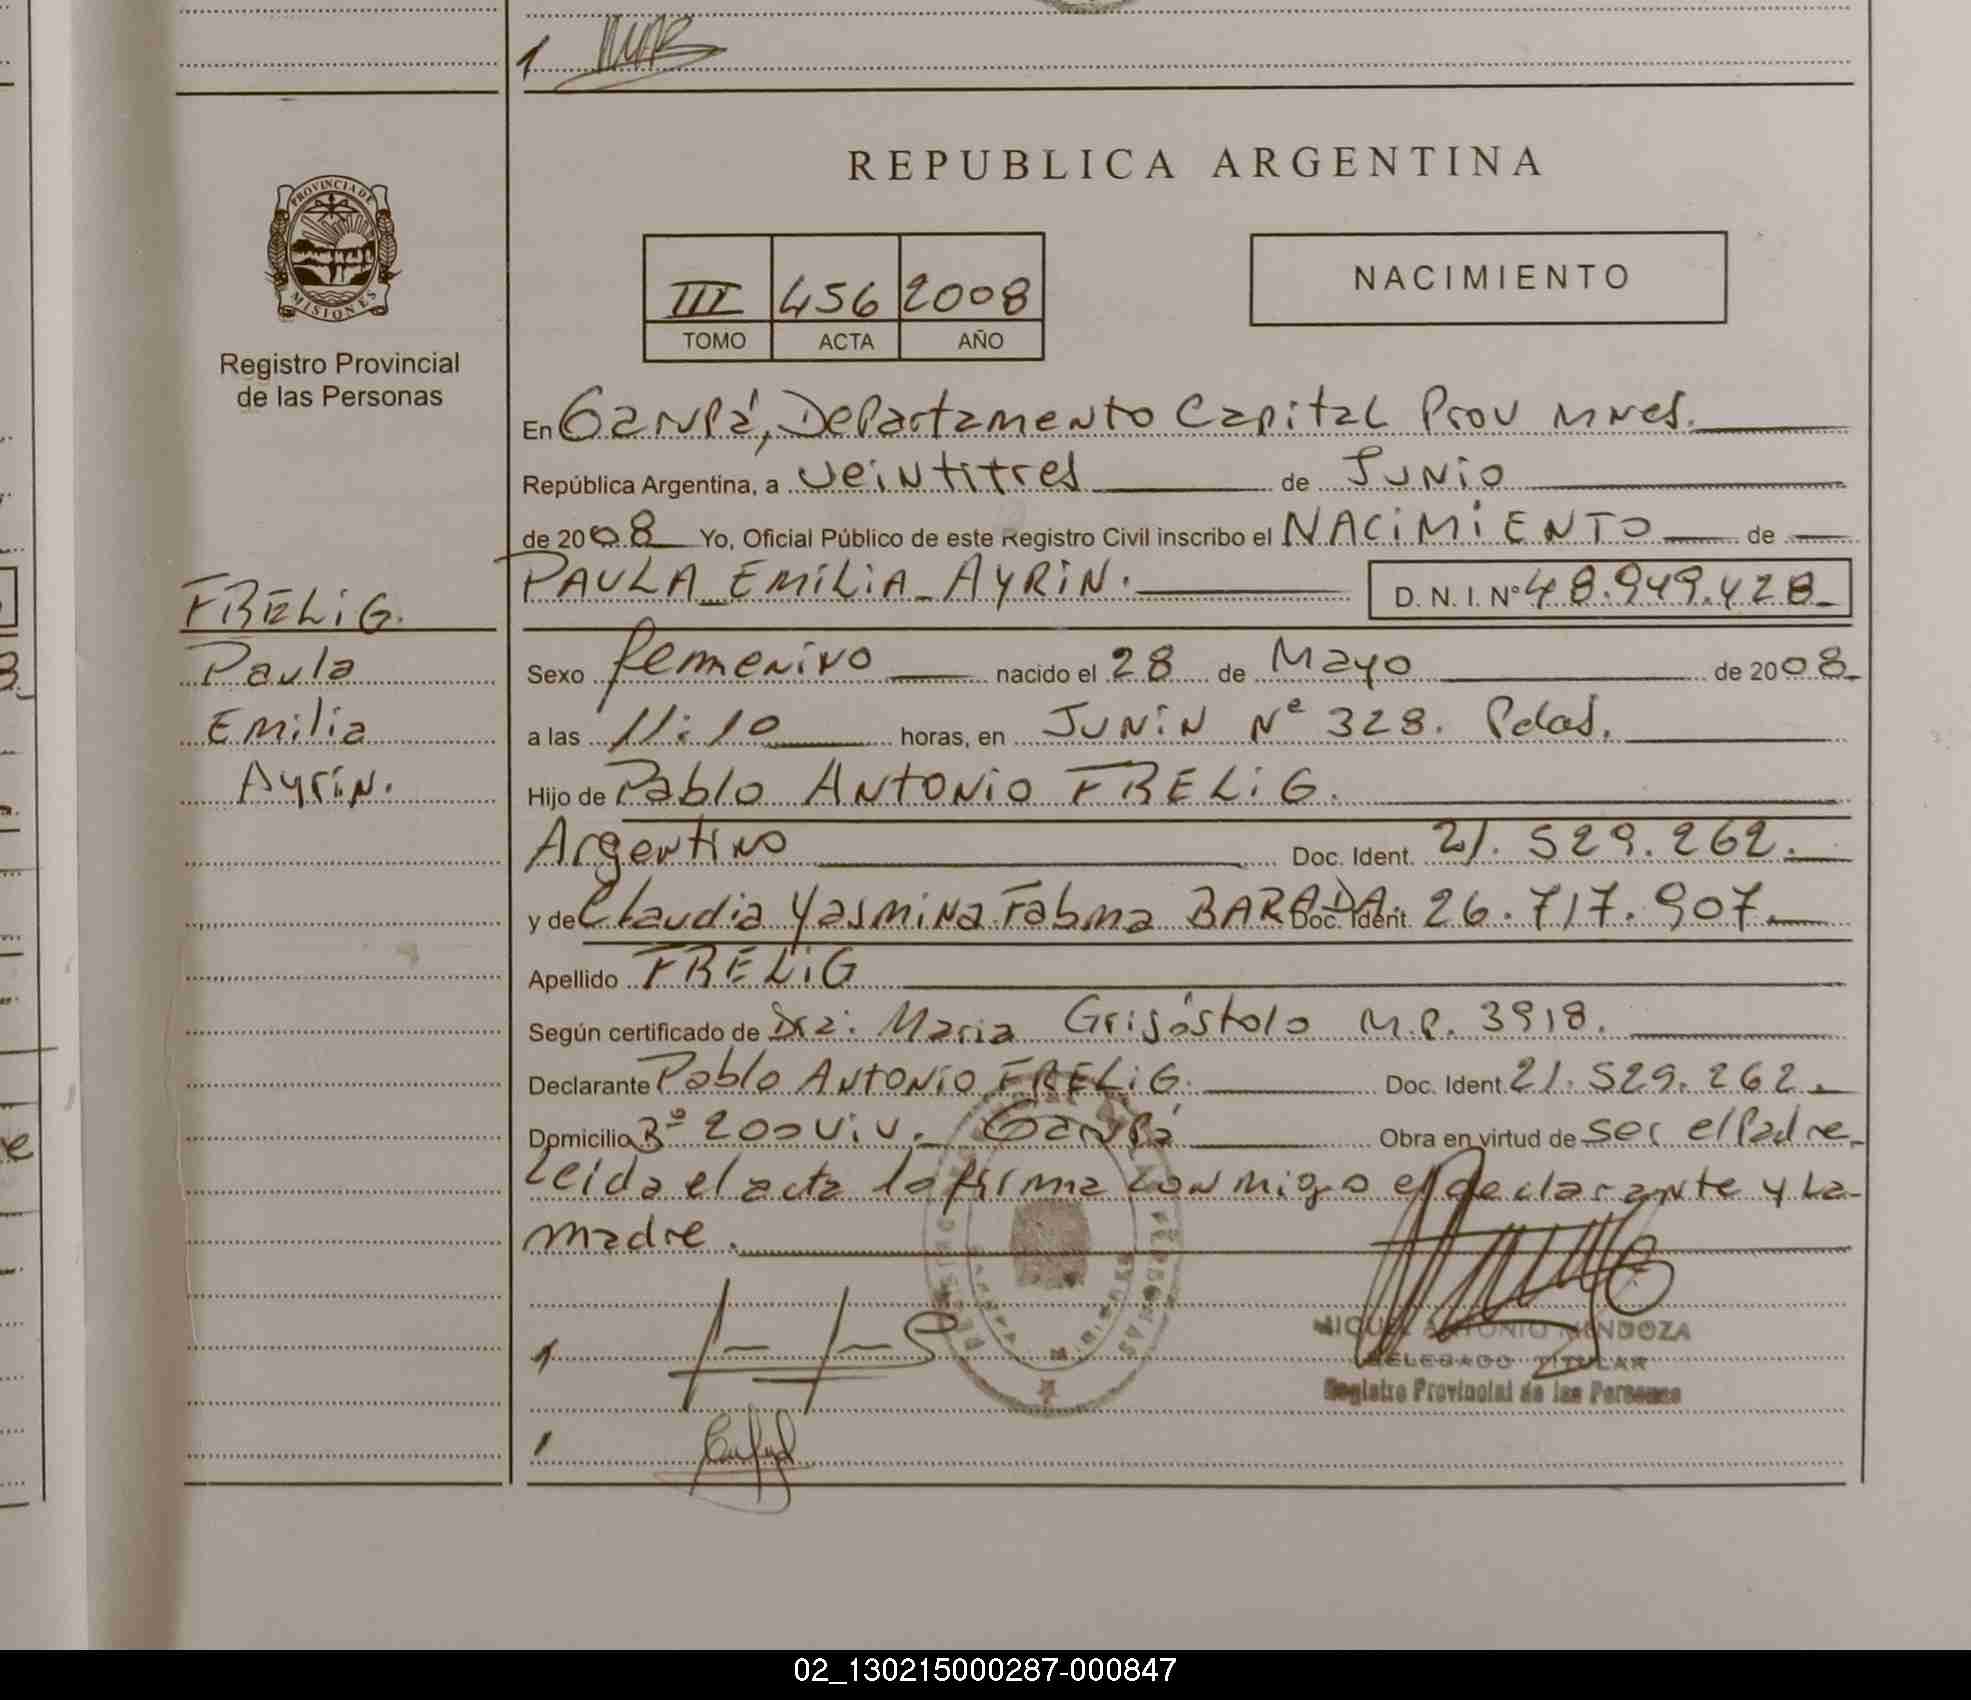 REPUBLICA ARGENTINA
PROVINCIA DE
MISIONES
Registro Provincial
de las Personas
III 456 2008
TOMO ACTA AÑO
NACIMIENTO
En Garupá, Departamento Capital Prov Mnes.
República Argentina, a veintitres de Junio
de 2008 Yo, Oficial Público de este Registro Civil inscribo el NACIMIENTO de
PAULA EMILIA AYRIN. D. N. I. Nº 48.949.428
FRELIG.
Paula
Emilia
Ayrin.
Sexo femenino nacido el 28 de Mayo de 2008
a las 11:10 horas, en JUNIN Nº 328. Pdas.
Hijo de Pablo ANTONIO FRELIG.
Argentino Doc. Ident. 21.529.262.
y de Claudia Yasmina BARADA. Doc. Ident. 26.717.907
Apellido FRELIG
Según certificado de Dra: Maria Grisóstolo M.P. 3918.
Declarante Pablo ANTONIO FRELIG. Doc. Ident. 21.529.262
Domicilio Bº 200 viv. Garupá Obra en virtud de ser el Padre
Leida el acta la firma conmigo el declarante y la
madre.
MIGUEL ANTONIO MENDOZA
DELEGADO TITULAR
Registro Provincial de las Personas
02_130215000287-000847